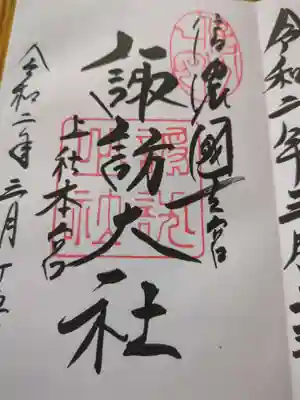 信濃國一之宮
諏訪大社
上社本宮
令和二年三月十五
令和二年三月十三